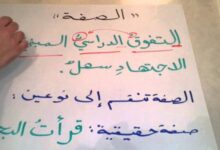 "الصفة"
التفوق الدراسي
الاجتهادِ سهلٌ.
الصفة تنقسم إلى نوعين:
صفة حقيقية: قرأتُ